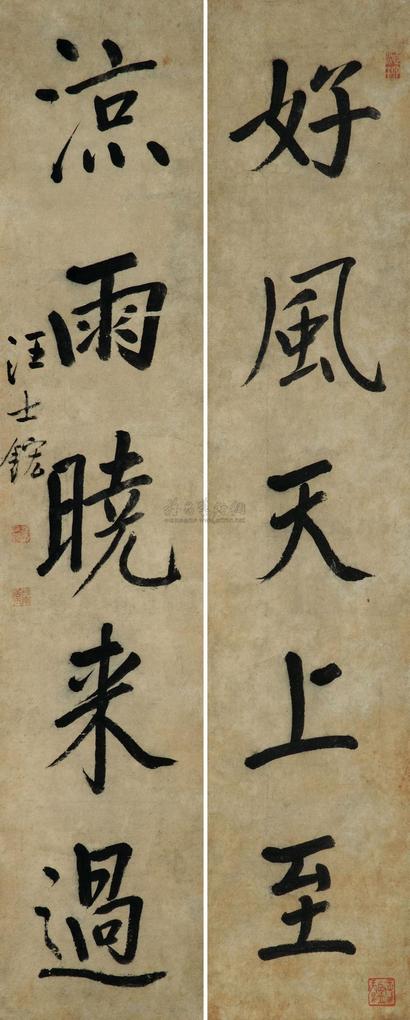 好風天上至
涼雨曉来過
汪士鋐